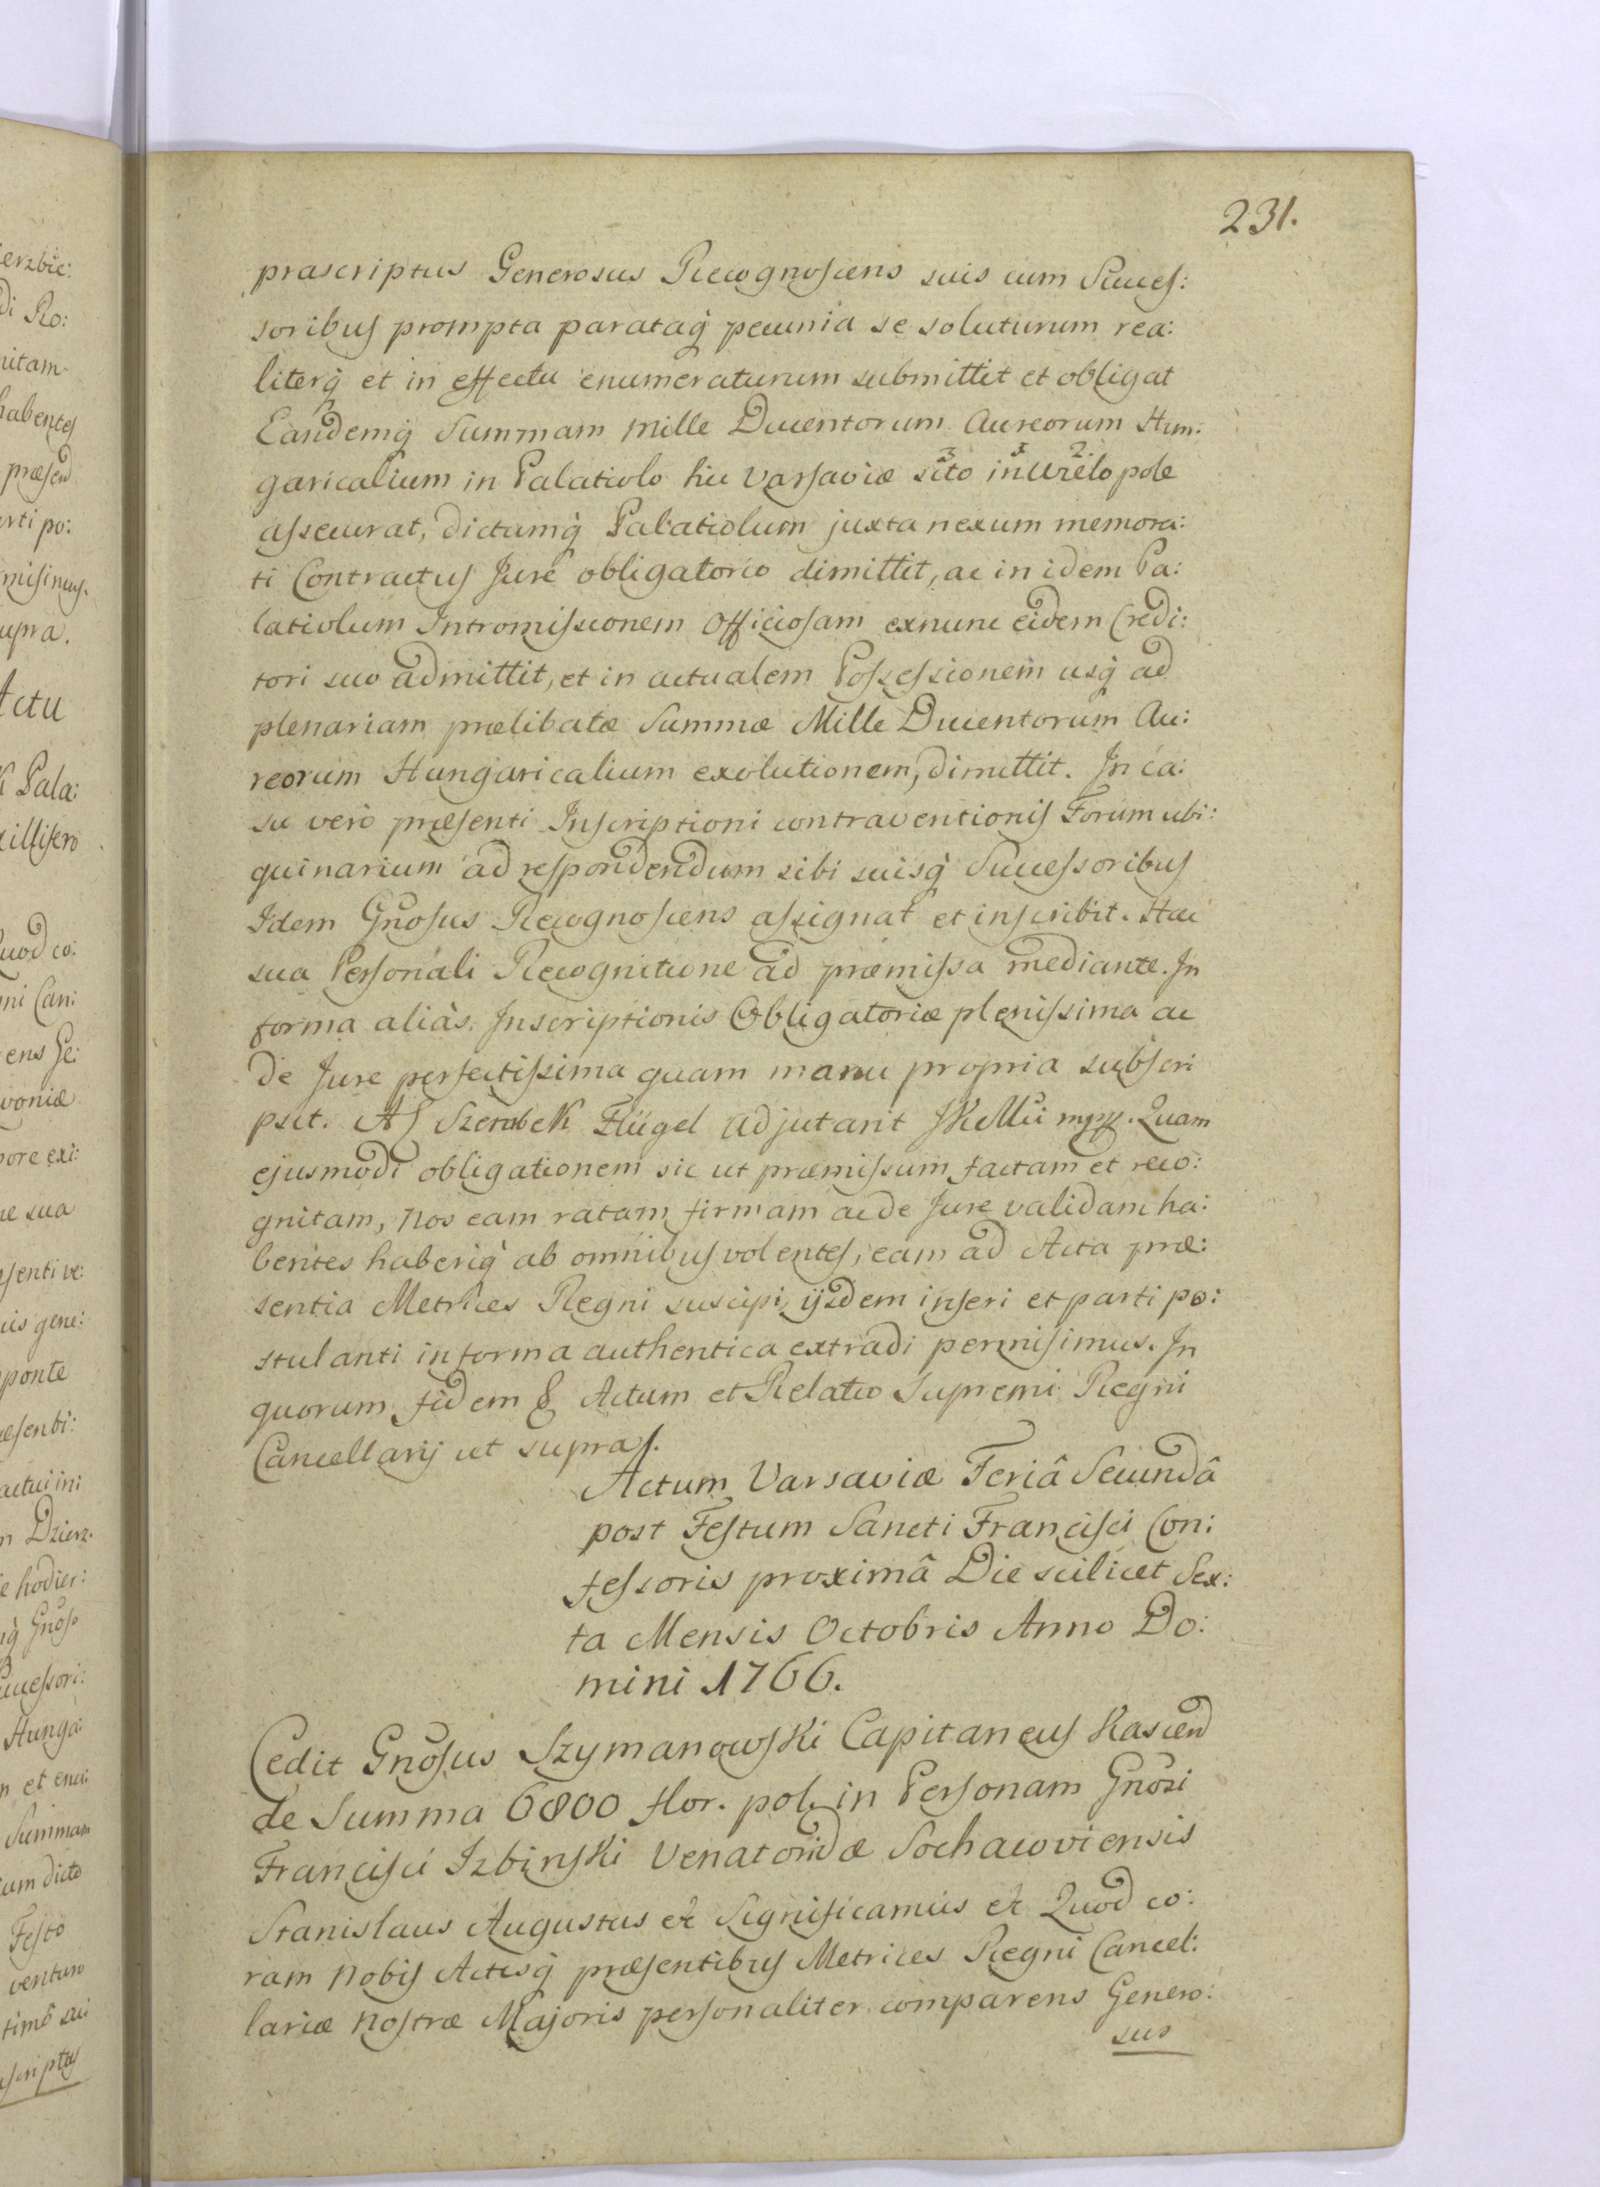 231.
præscriptus Generosus Recognoscens suis cum Succes:
soribus prompta parataq̃ pecunia se soluturum rea:
literq̃ et in effectu enumeraturum submittit et obligat
Eandemq̃ Summam Mille Ducentorum Aureorum Hun:
garicalium in Palatiolo hic Varsaviæ sito in Wielopole
assecurat, dictumq̃ Palatiolum juxta nexum memora:
ti Contractus Jure obligatorio dimittit, ac in idem Pa:
latiolum Intromissionem Officiosam exnunc eidem Credi:
tori suo admittit, et in actualem Possessionem usq̃ ad
plenariam prælibatæ Summæ Mille Ducentorum Au:
reorum Hungaricalium exolutionem, dimittit. In ca:
su vero præsenti Inscriptioni contraventionis Forum ubi:
quinarium ad respondendum sibi suisq̃ Successoribus
Idem Gnosus Recognoscens assignat et inscribit. Hac
sua Personali Recognitione ad præmissa mediante. In
forma aliàs Inscriptionis Obligatoriæ plenissima ac
de Jure perfectissima quam manu propria subscri
psit. Szembek Flügel Adjutant mpp. Quam
ejusmodi obligationem sic ut præmissum factam et reco:
gnitam, Nos eam ratam firmam ac de Jure validam ha:
bentes haberiq̃ ab omnibus volentes, eam ad Acta præ:
sentia Metrices Regni suscipi, ijsdem inseri et parti po:
stulanti in forma authentica extradi permisimus. In
quorum fidem & Actum et Relatio Supremi Regni
Cancellarij ut supra
Actum Varsaviæ Feriâ Secundâ
post Festum Sancti Francisci Con:
fessoris proximâ Die scilicet Sex:
ta Mensis Octobris Anno Do:
mini 1766.
Cedit Gnosus Szymanowski Capitaneus Rasciend
de Summa 6800 flor. pol. in Personam Gnosi
Francisci Izbinski Venatoridæ Sochacoviensis
Stanislaus Augustus et Significamus et Quod co:
ram Nobis Actisq̃ præsentibus Metrices Regni Cancel:
lariæ Nostræ Majoris personaliter comparens Genero:
sus